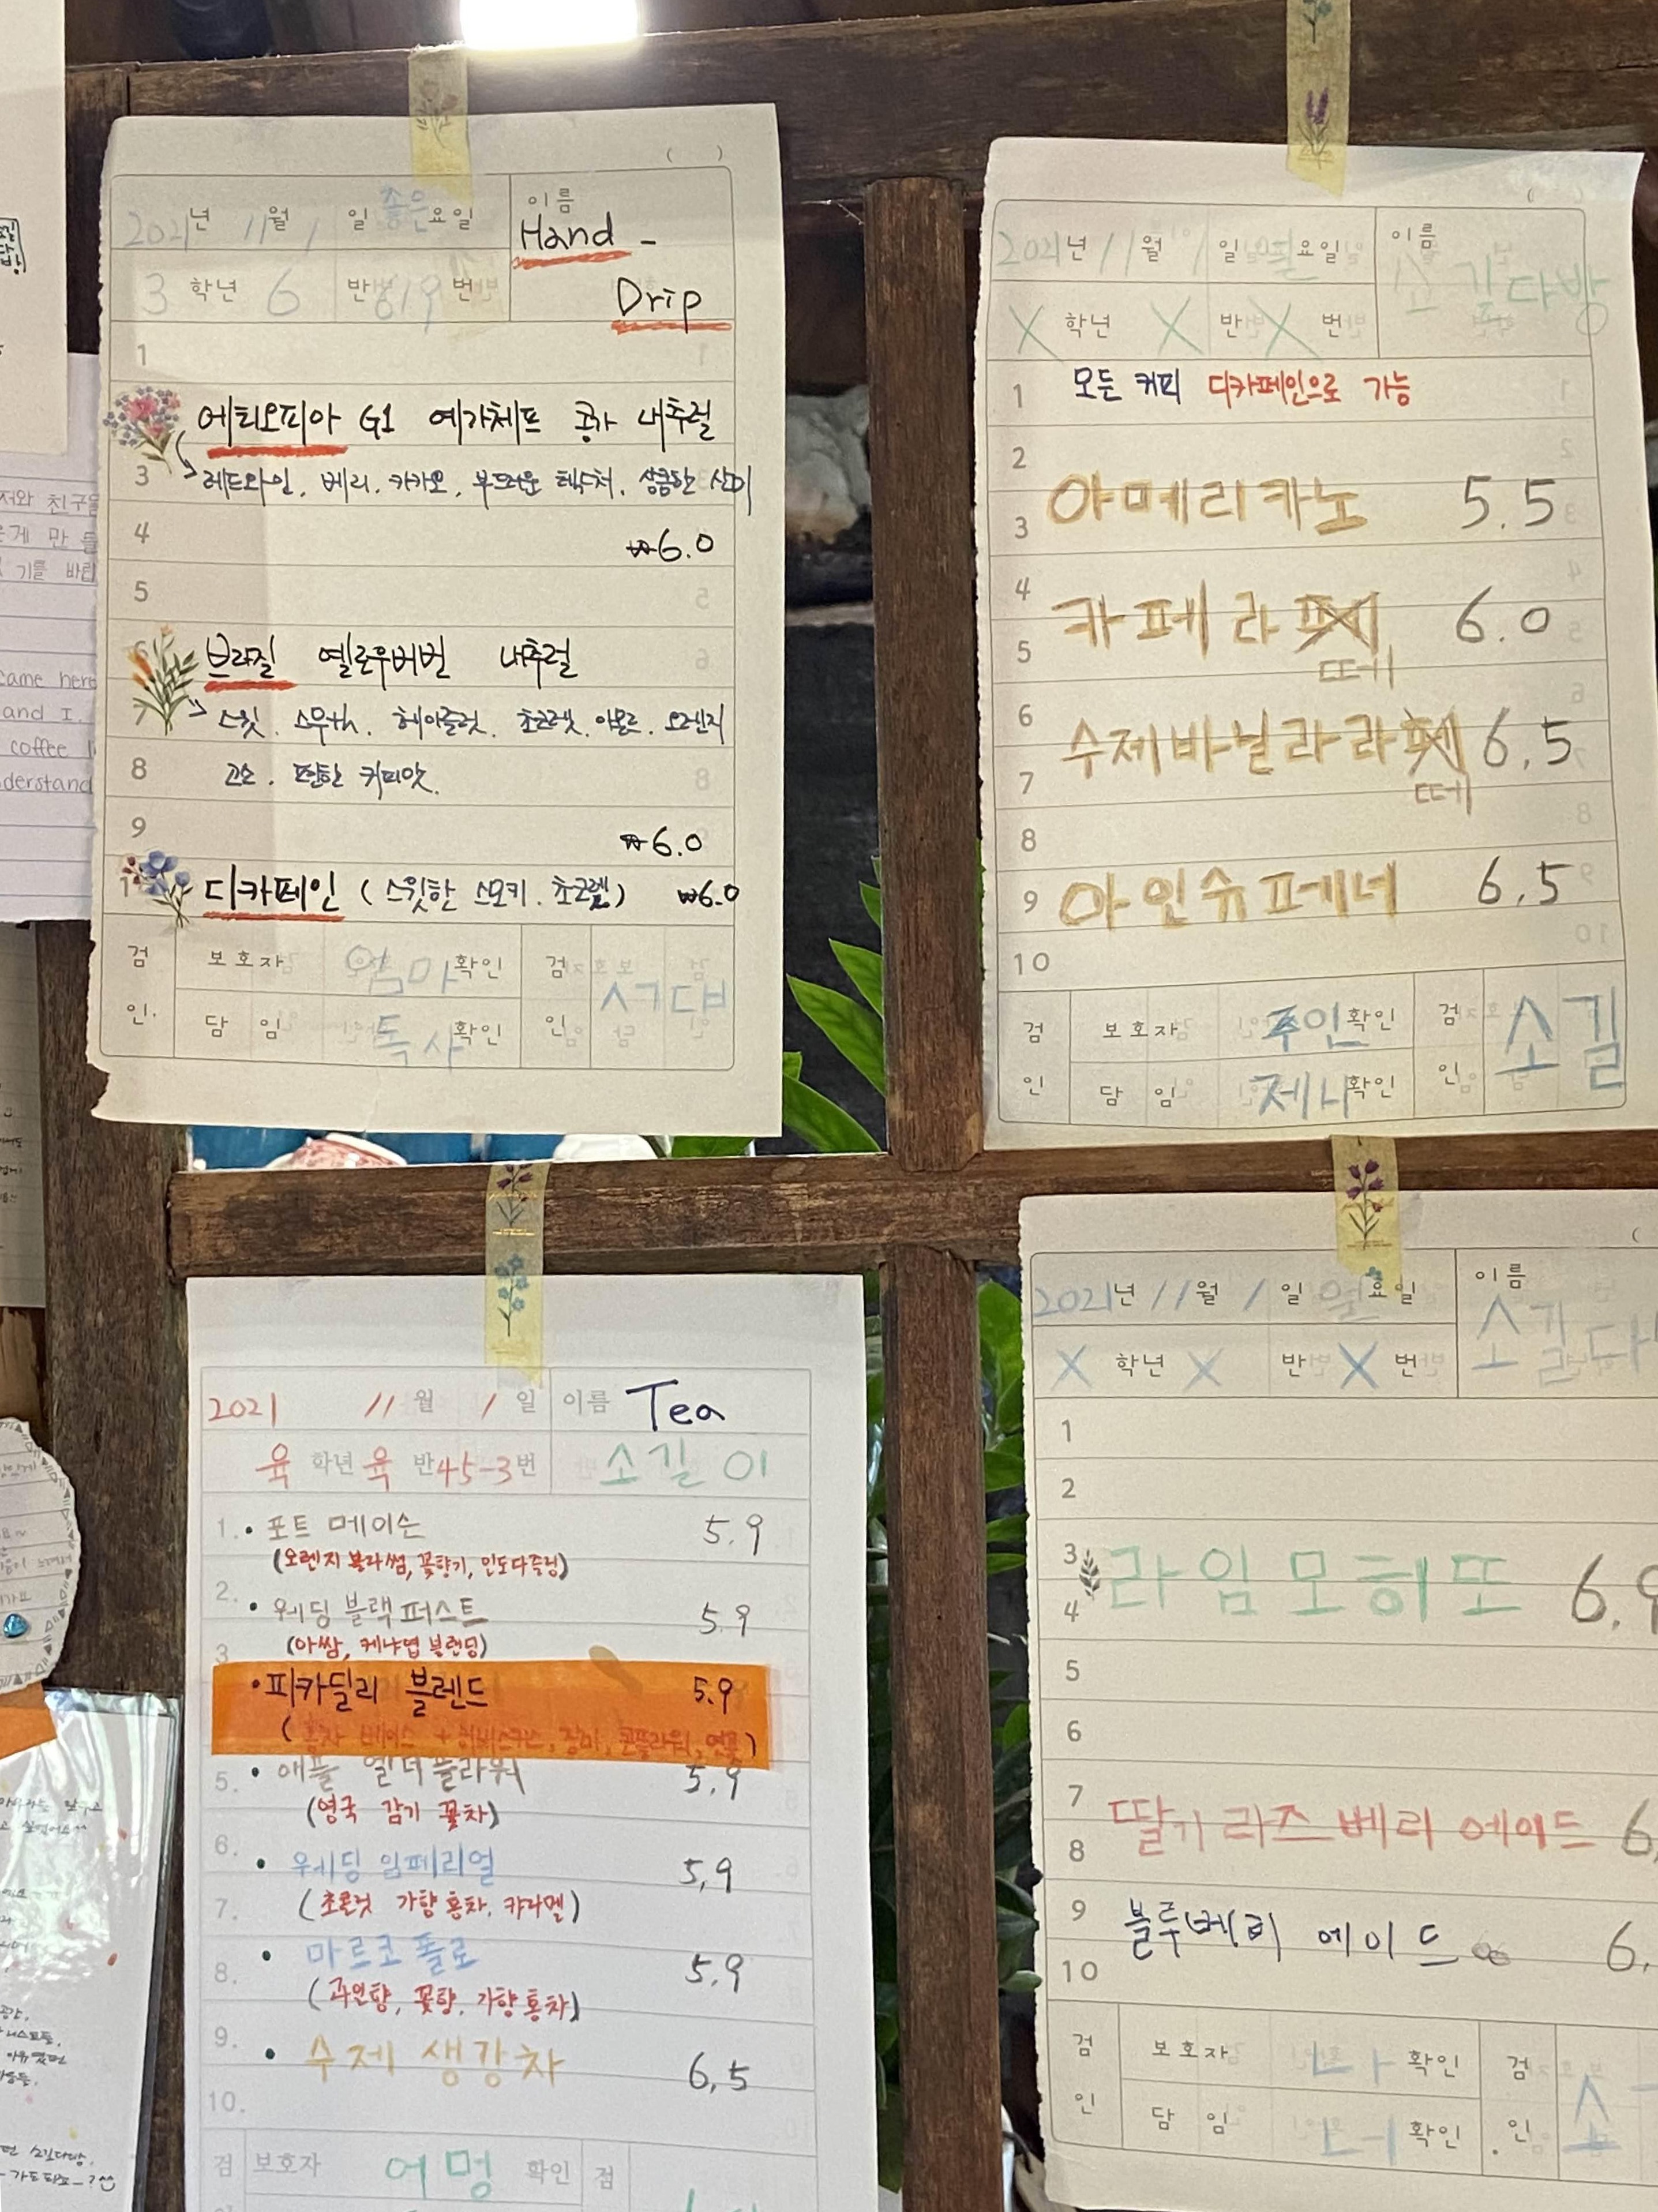 2021년 11월 1일 좋은요일
이름
Hand -
Drip
3 학년 6 반 819 번
1
에티오피아 G1 예가체프 콩가 내추럴
3 레드와인. 베리. 카카오. 부드러운 텍스처. 상큼한 산미
4
₩6.0
5
6 브라질 옐로우버번 내추럴
7 스윗. 스무th. 헤이즐럿. 초코렛. 아몬드. 오렌지
8 고소. 편한 커피맛.
9
₩6.0
디카페인 (스윗한 스모키. 초코렛) ₩6.0
검 보호자 엄마 확인 검
인. 담 임 독사 확인 인
2021년 11월 1일 월요일
이름
소길다방
X 학년 X 반 X 번
1 모든 커피 디카페인으로 가능
2
3 아메리카노 5.5
4
5 카페라떼 6.0
6
7 수제바닐라라떼 6.5
8
9 아인슈페너 6.5
10
검 보호자 주인 확인 검 소길
인 담 임 제니 확인 인
2021 11월 1일 이름 Tea
육 학년 육 반 45-3번 소길이
1. • 포트 메이슨 5.9
(오렌지 블라썸, 꽃향기, 인도다즐링)
2. • 웨딩 블랙퍼스트 5.9
(아쌈, 케냐엽 블랜딩)
3
• 피카딜리 블렌드 5.9
(홍차 베이스 + 히비스커스, 장미, 콘플라워, 연꽃)
5. • 애플 엘더플라워 5.9
(영국 감기 꽃차)
6. • 웨딩 임페리얼 5,9
7. (초콜릿 가향홍차. 캬라멜)
8. • 마르코폴로 5.9
(과일향, 꽃향, 가향홍차)
9. • 수제 생강차 6,5
10.
검 보호자 어멍 확인 검
2021년 11월 1일 월요일
이름
소길다
X 학년 X 반 X 번
1
2
3
4 라임모히또 6.9
5
6
7
8 딸기 라즈베리 에이드 6
9 블루베리 에이드 6.
10
검 보호자 확인 검
인 담 임 확인 인